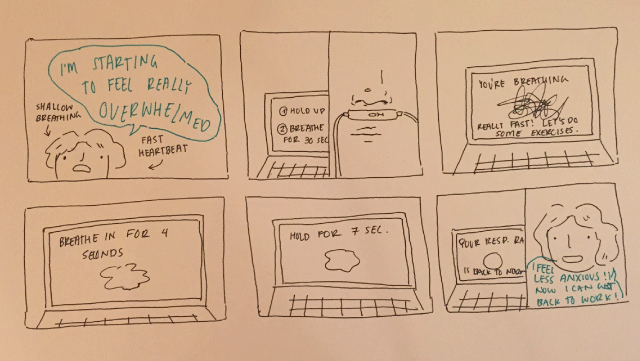 I'M STARTING
TO FEEL REALLY
OVERWHELMED
SHALLOW
BREATHING
FAST
HEARTBEAT
① HOLD UP
② BREATHE
FOR 30 SEC
YOU'RE BREATHING
REALLY FAST! LET'S DO
SOME EXERCISES.
BREATHE IN FOR 4
SECONDS
HOLD FOR 7 SEC.
YOUR RESP. RA
IS BACK TO NORM
I FEEL
LESS ANXIOUS!
NOW I CAN GET
BACK TO WORK!